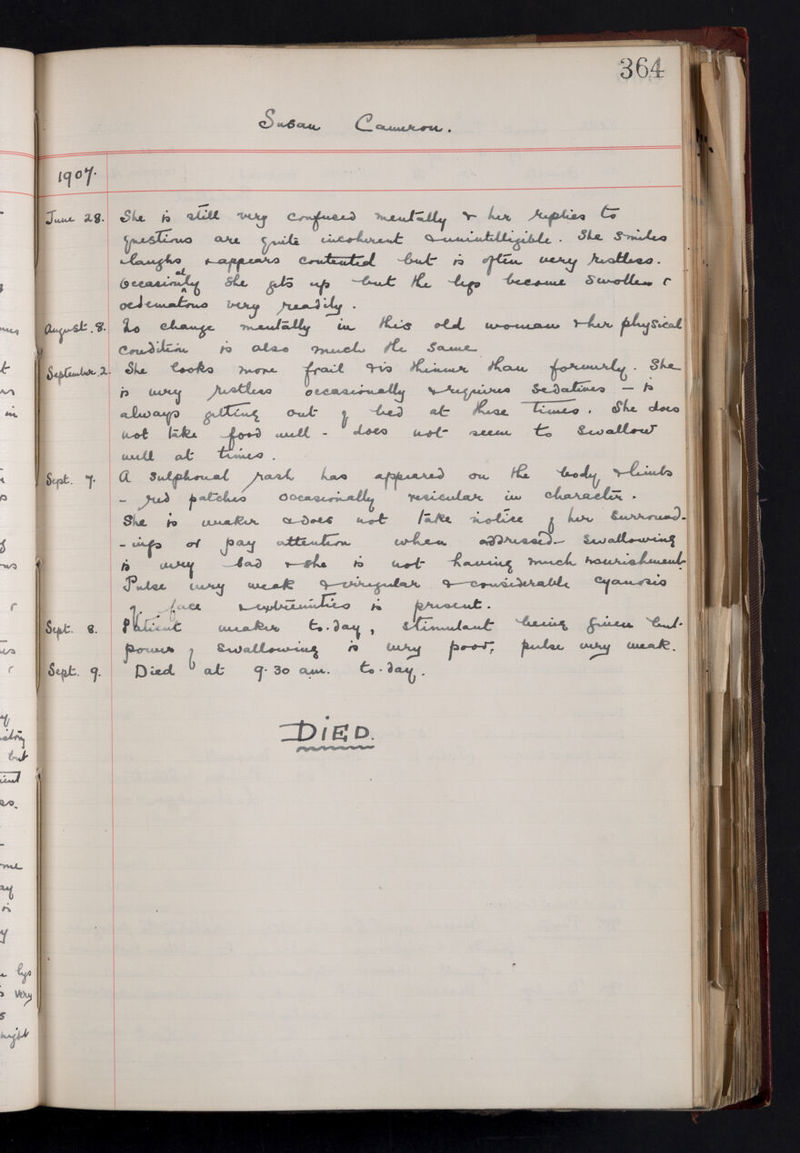 364
Susan Cameron.
1907.
June 28. She is still very confused mentally & her replies to
questions are quite incoherent & unintelligible. She smiles
& laughs & appears contented but is often very restless.
Occasionally she gets up but the legs become swollen &
oedematous very readily.
August. 8. No change mentally in this old woman & her physical
condition is also much the same
September. 2. She looks more frail & is thinner than formerly. She
is very restless occasionally & requires sedatives – is
always getting out of bed at these times. She does
not take food well - does not seem to swallow
well at times.
Sept. 7. A sulphonal rash has appeared on the body & limbs
- red patches occasionally vesicular in character.
She is weaker & does not take notice of her surround-
-ings or pay attention when addressed - swallowing
is very bad & she is not having much nourishment
Pulse very weak & irregular & considerable cyanosis
of face & extremities is present.
Sept. 8. Patient weaker to-day, stimulant being given but
power of swallowing is very poor, pulse very weak.
Sept. 9. Died at 9.30 am. to-day.
DIED.